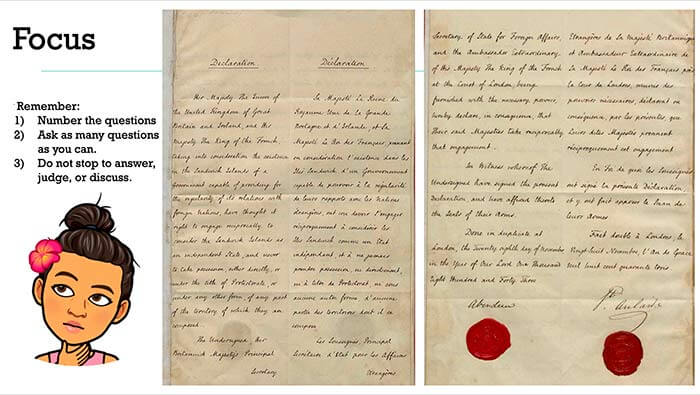 Focus
Remember:
1) Number the questions
2) Ask as many questions
as you can.
3) Do not stop to answer,
judge, or discuss.
Declaration
Her Majesty The Queen of
the United Kingdom of Great
Britain and Ireland, and His
Majesty The King of the French,
taking into consideration the existence
in the Sandwich Islands of a
Government capable of providing for
the regularity of its relations with
foreign Nations, have thought it
right to engage, reciprocally, to
consider the Sandwich Islands as
an independent State, and never
to take possession, either directly, or
under the title of Protectorate, or
under any other form, of any part
of the territory of which they are
composed.
The Undersigned, Her
Britannick Majesty's Principal
Secretary
Déclaration
Sa Majesté La Reine du
Royaume Uni de la Grande
Bretagne et d'Irlande, et Sa
Majesté Le Roi des Français prenant
en considération l'existence dans les
Iles Sandwich d'un Gouvernement
capable de pourvoir à la régularité
de leurs rapports avec les Nations
étrangères, ont cru devoir s'engager
réciproquement à considérer les
Iles Sandwich comme un Etat
indépendant et à ne jamais
prendre possession, ni directement,
ni à titre de Protectorat, ni sous
aucune autre forme, d'aucune
partie des territoires dont il se
compose.
Les Soussignés, Principal
Secrétaire d'Etat pour les Affaires
Etrangères
Secretary of State for Foreign Affairs,
and the Ambassador Extraordinary
of His Majesty The King of the French
at the Court of London, being
furnished with the necessary powers,
hereby declare, in consequence, that
Their said Majesties take reciprocally
that engagement.
In Witness whereof The
Undersigned have signed the present
Declaration, and have affixed thereto
the Seals of Their Arms.
Done in duplicate at
London, the Twenty eighth day of November
in the Year of Our Lord One Thousand
Eight Hundred and Forty Three
Aberdeen
Etrangères de Sa Majesté Britannique
et Ambassadeur Extraordinaire de
Sa Majesté Le Roi des Français près
la Cour de Londres, munis des
pouvoirs nécessaires, déclarent en
conséquence, par les présentes, que
Leurs dites Majestés prennent
réciproquement cet engagement
En Foi de quoi les Soussignés
ont signé la présente Déclaration,
et y ont fait apposer le Sceau de
leurs Armes
Fait double à Londres, le
Vingt huit Novembre, l'An de Grace
mil huit cent quarante trois